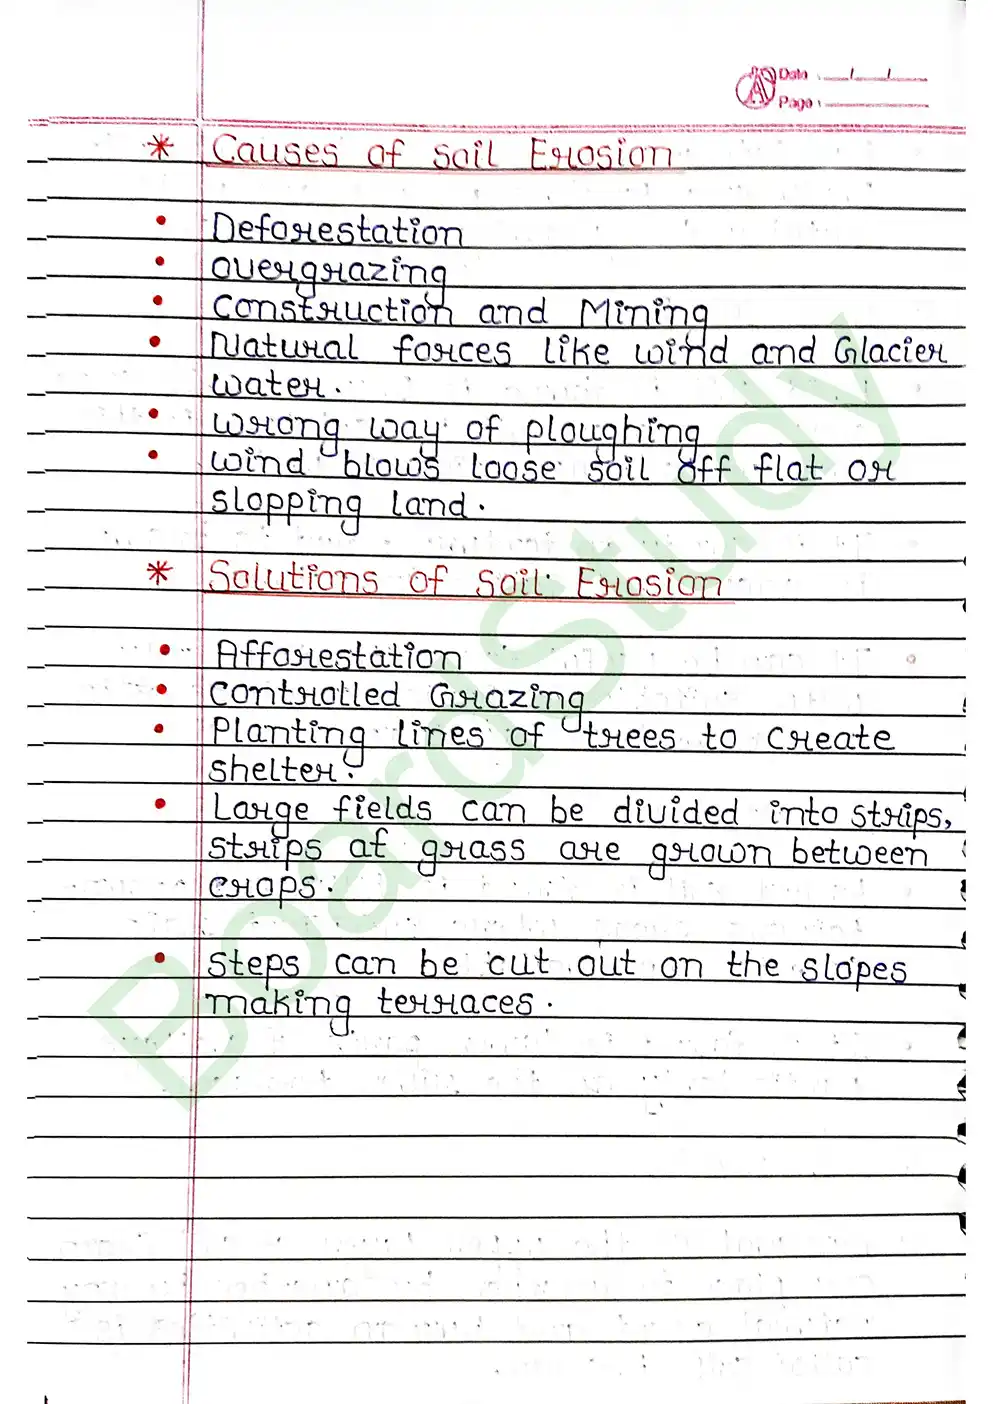 Date : __/__/__
Page :
* Causes of soil Erosion
• Deforestation
• overgrazing
• construction and Mining
• Natural forces like wind and Glacier
water.
• wrong way of ploughing
• wind blows loose soil off flat or
slopping land.
* Solutions of soil Erosion
• Afforestation
• controlled Grazing
• Planting lines of trees to create
shelter.
• Large fields can be divided into strips,
strips of grass are grown between
crops.
• steps can be cut out on the slopes
making terraces.
BoardStudy